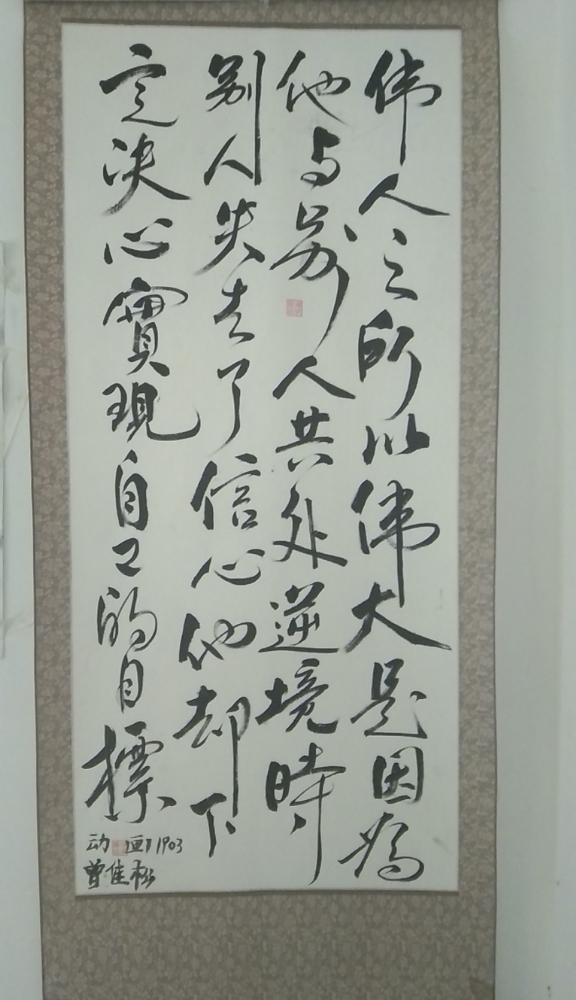 伟人之所以伟大是因為
他与别人共处逆境時
别人失去了信心他却下
定决心實現自己的目標
动画1903
曾佳松